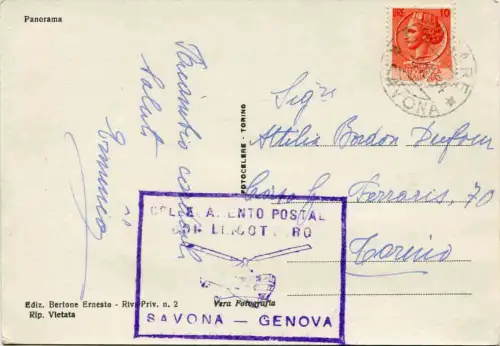 Panorama
LIRE 10
Ricambio cordiali
saluti
Sig.
Attilio Bordon Dufour
Corso G. Ferraris, 70
Torino
FOTOCELERE - TORINO
COLLEGAMENTO POSTALE
CON ELICOTTERO
SAVONA — GENOVA
Ediz. Bertone Ernesto - Riv. Priv. n. 2
Rip. Vietata
Vera Fotografia